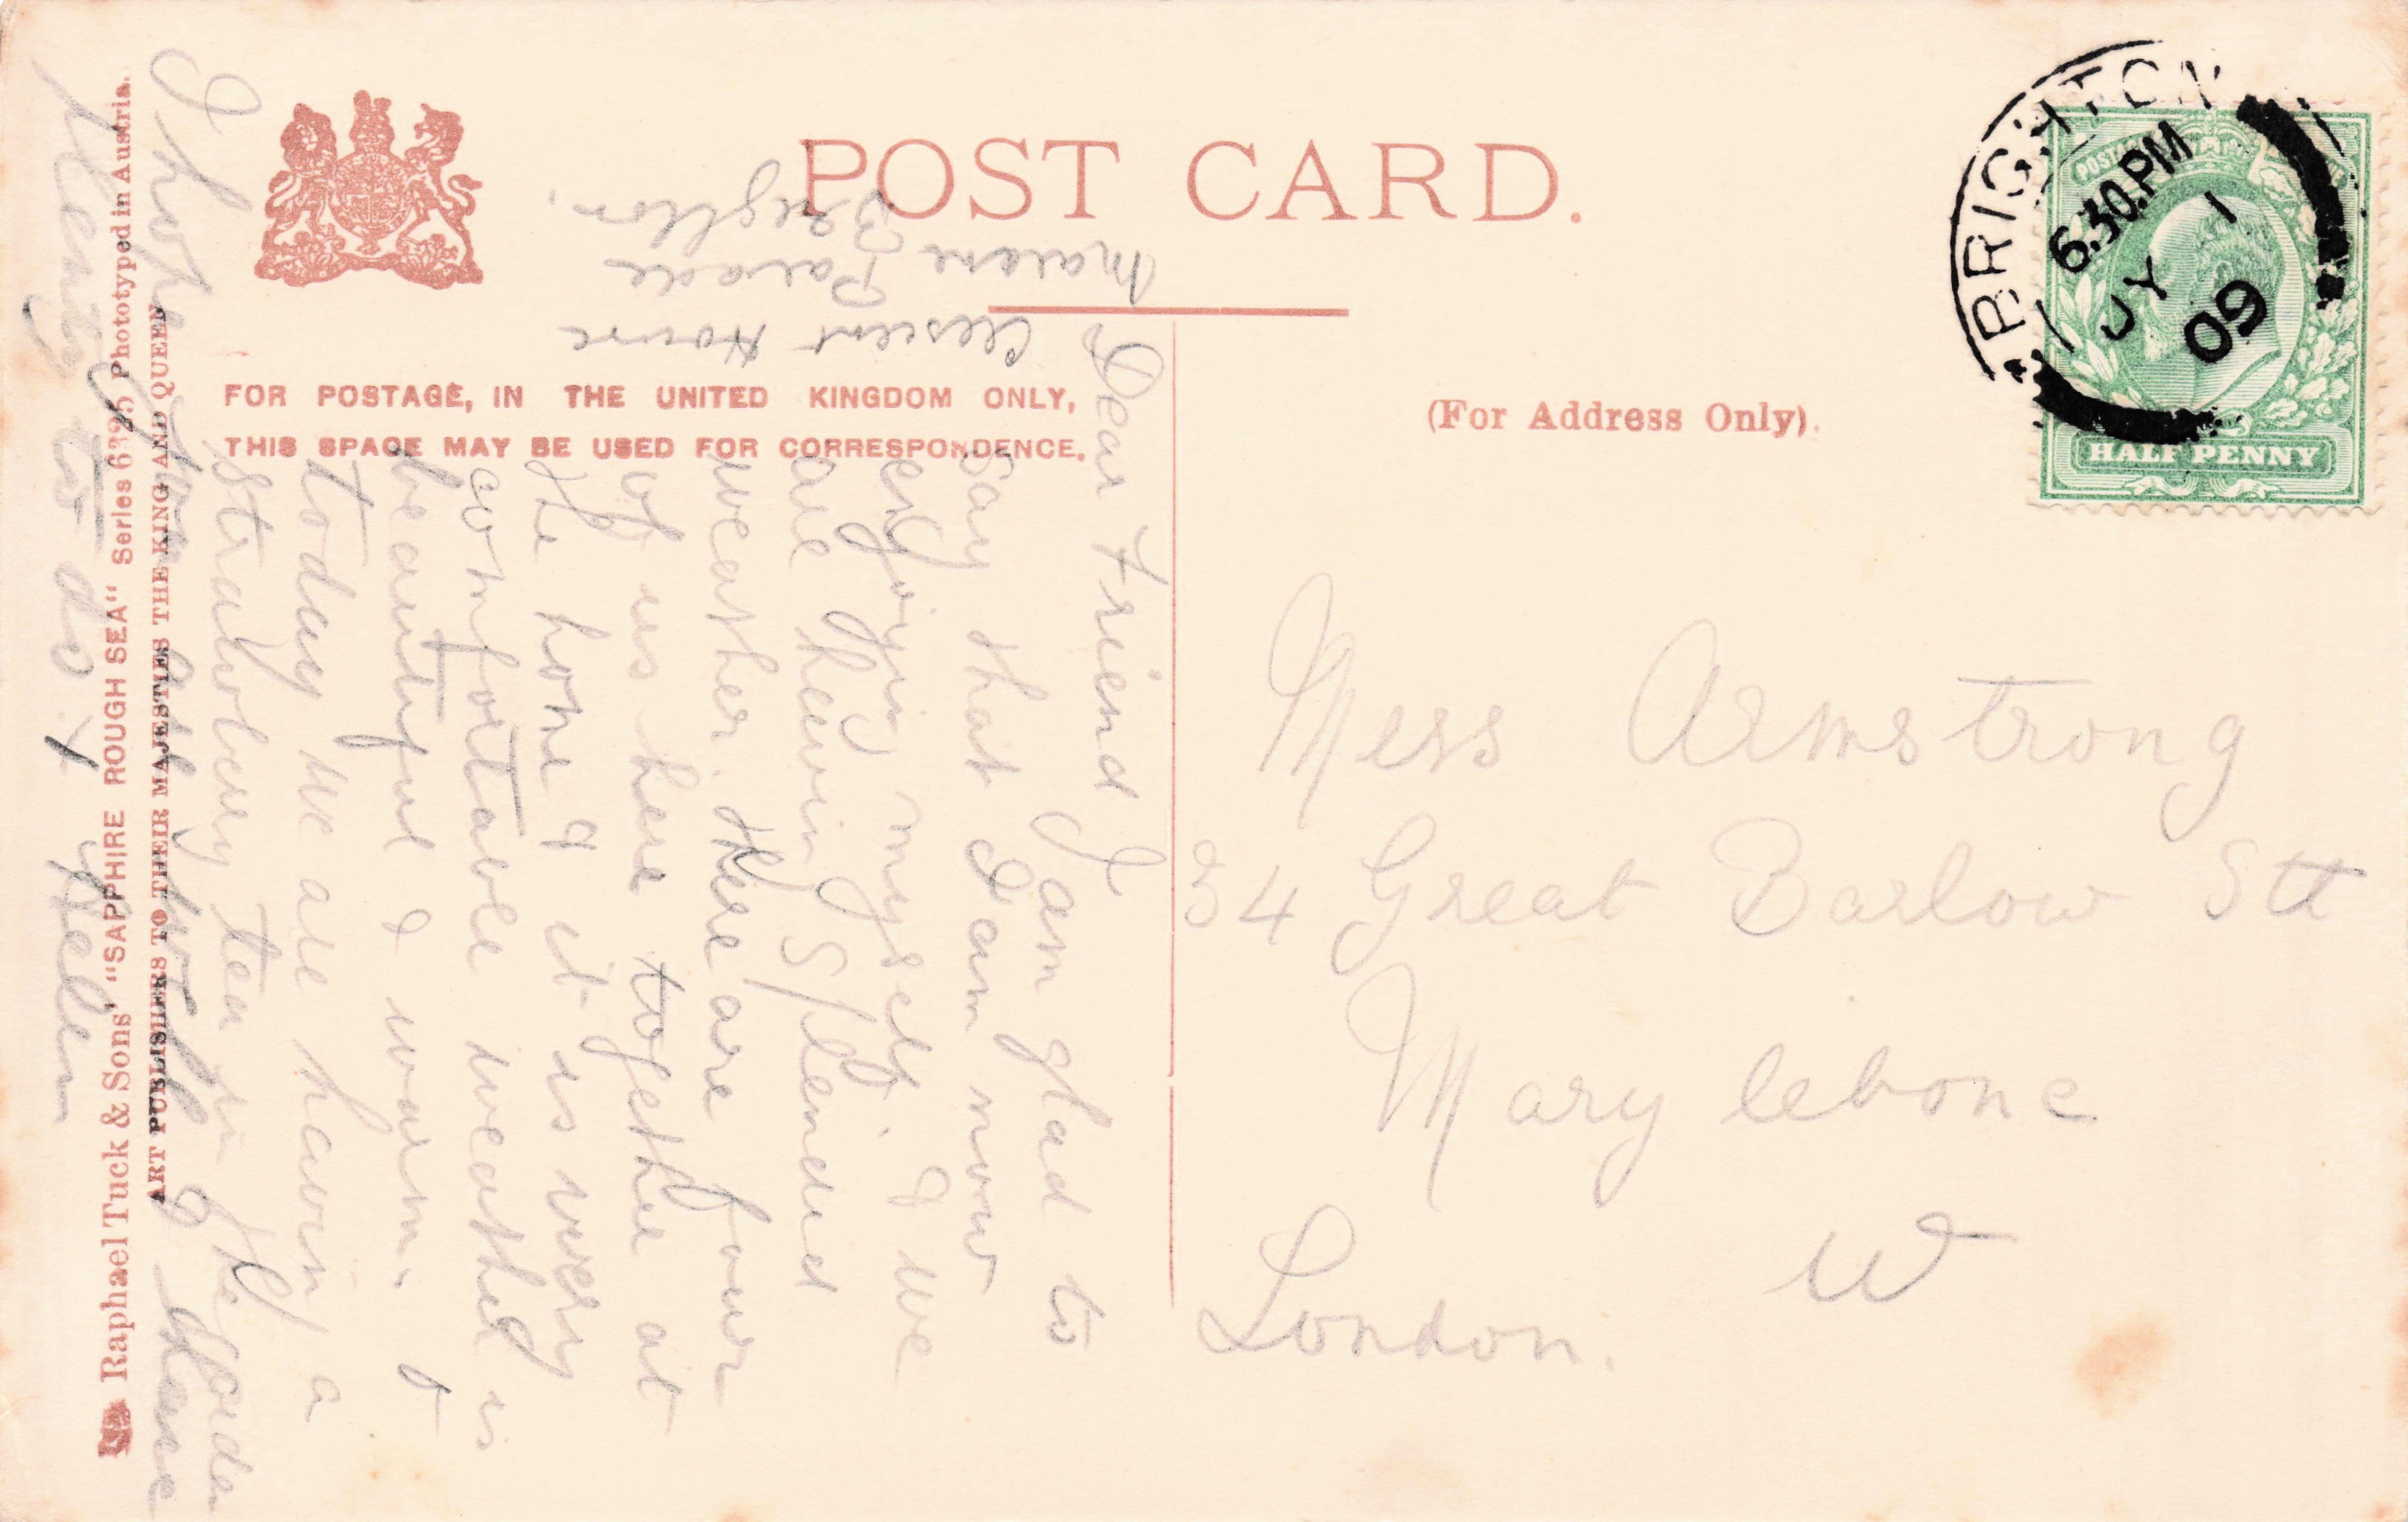 POST CARD.
FOR POSTAGE, IN THE UNITED KINGDOM ONLY,
THIS SPACE MAY BE USED FOR CORRESPONDENCE.
(For Address Only).
BRIGHTON
6.30.PM
JY 1
09
HALF PENNY
Miss Armstrong
34 Great Barlow Stt
Mary lebone
W
London.
Crescent House
Marine Parade
Brighton.
Dear Friend I
am glad to
say that I am now
enjoying myself. & we
are having Splended
weather. there are four
of us here together at
the home & it is very
comfortable weather is
beautiful & warm.
today we are having a
strawbery tea in the garden
I hope you are well & have
plenty to do. Helen
Raphael Tuck & Sons' "SAPPHIRE ROUGH SEA" Series 6395 Phototyped in Austria.
ART PUBLISHERS TO THEIR MAJESTIES THE KING AND QUEEN